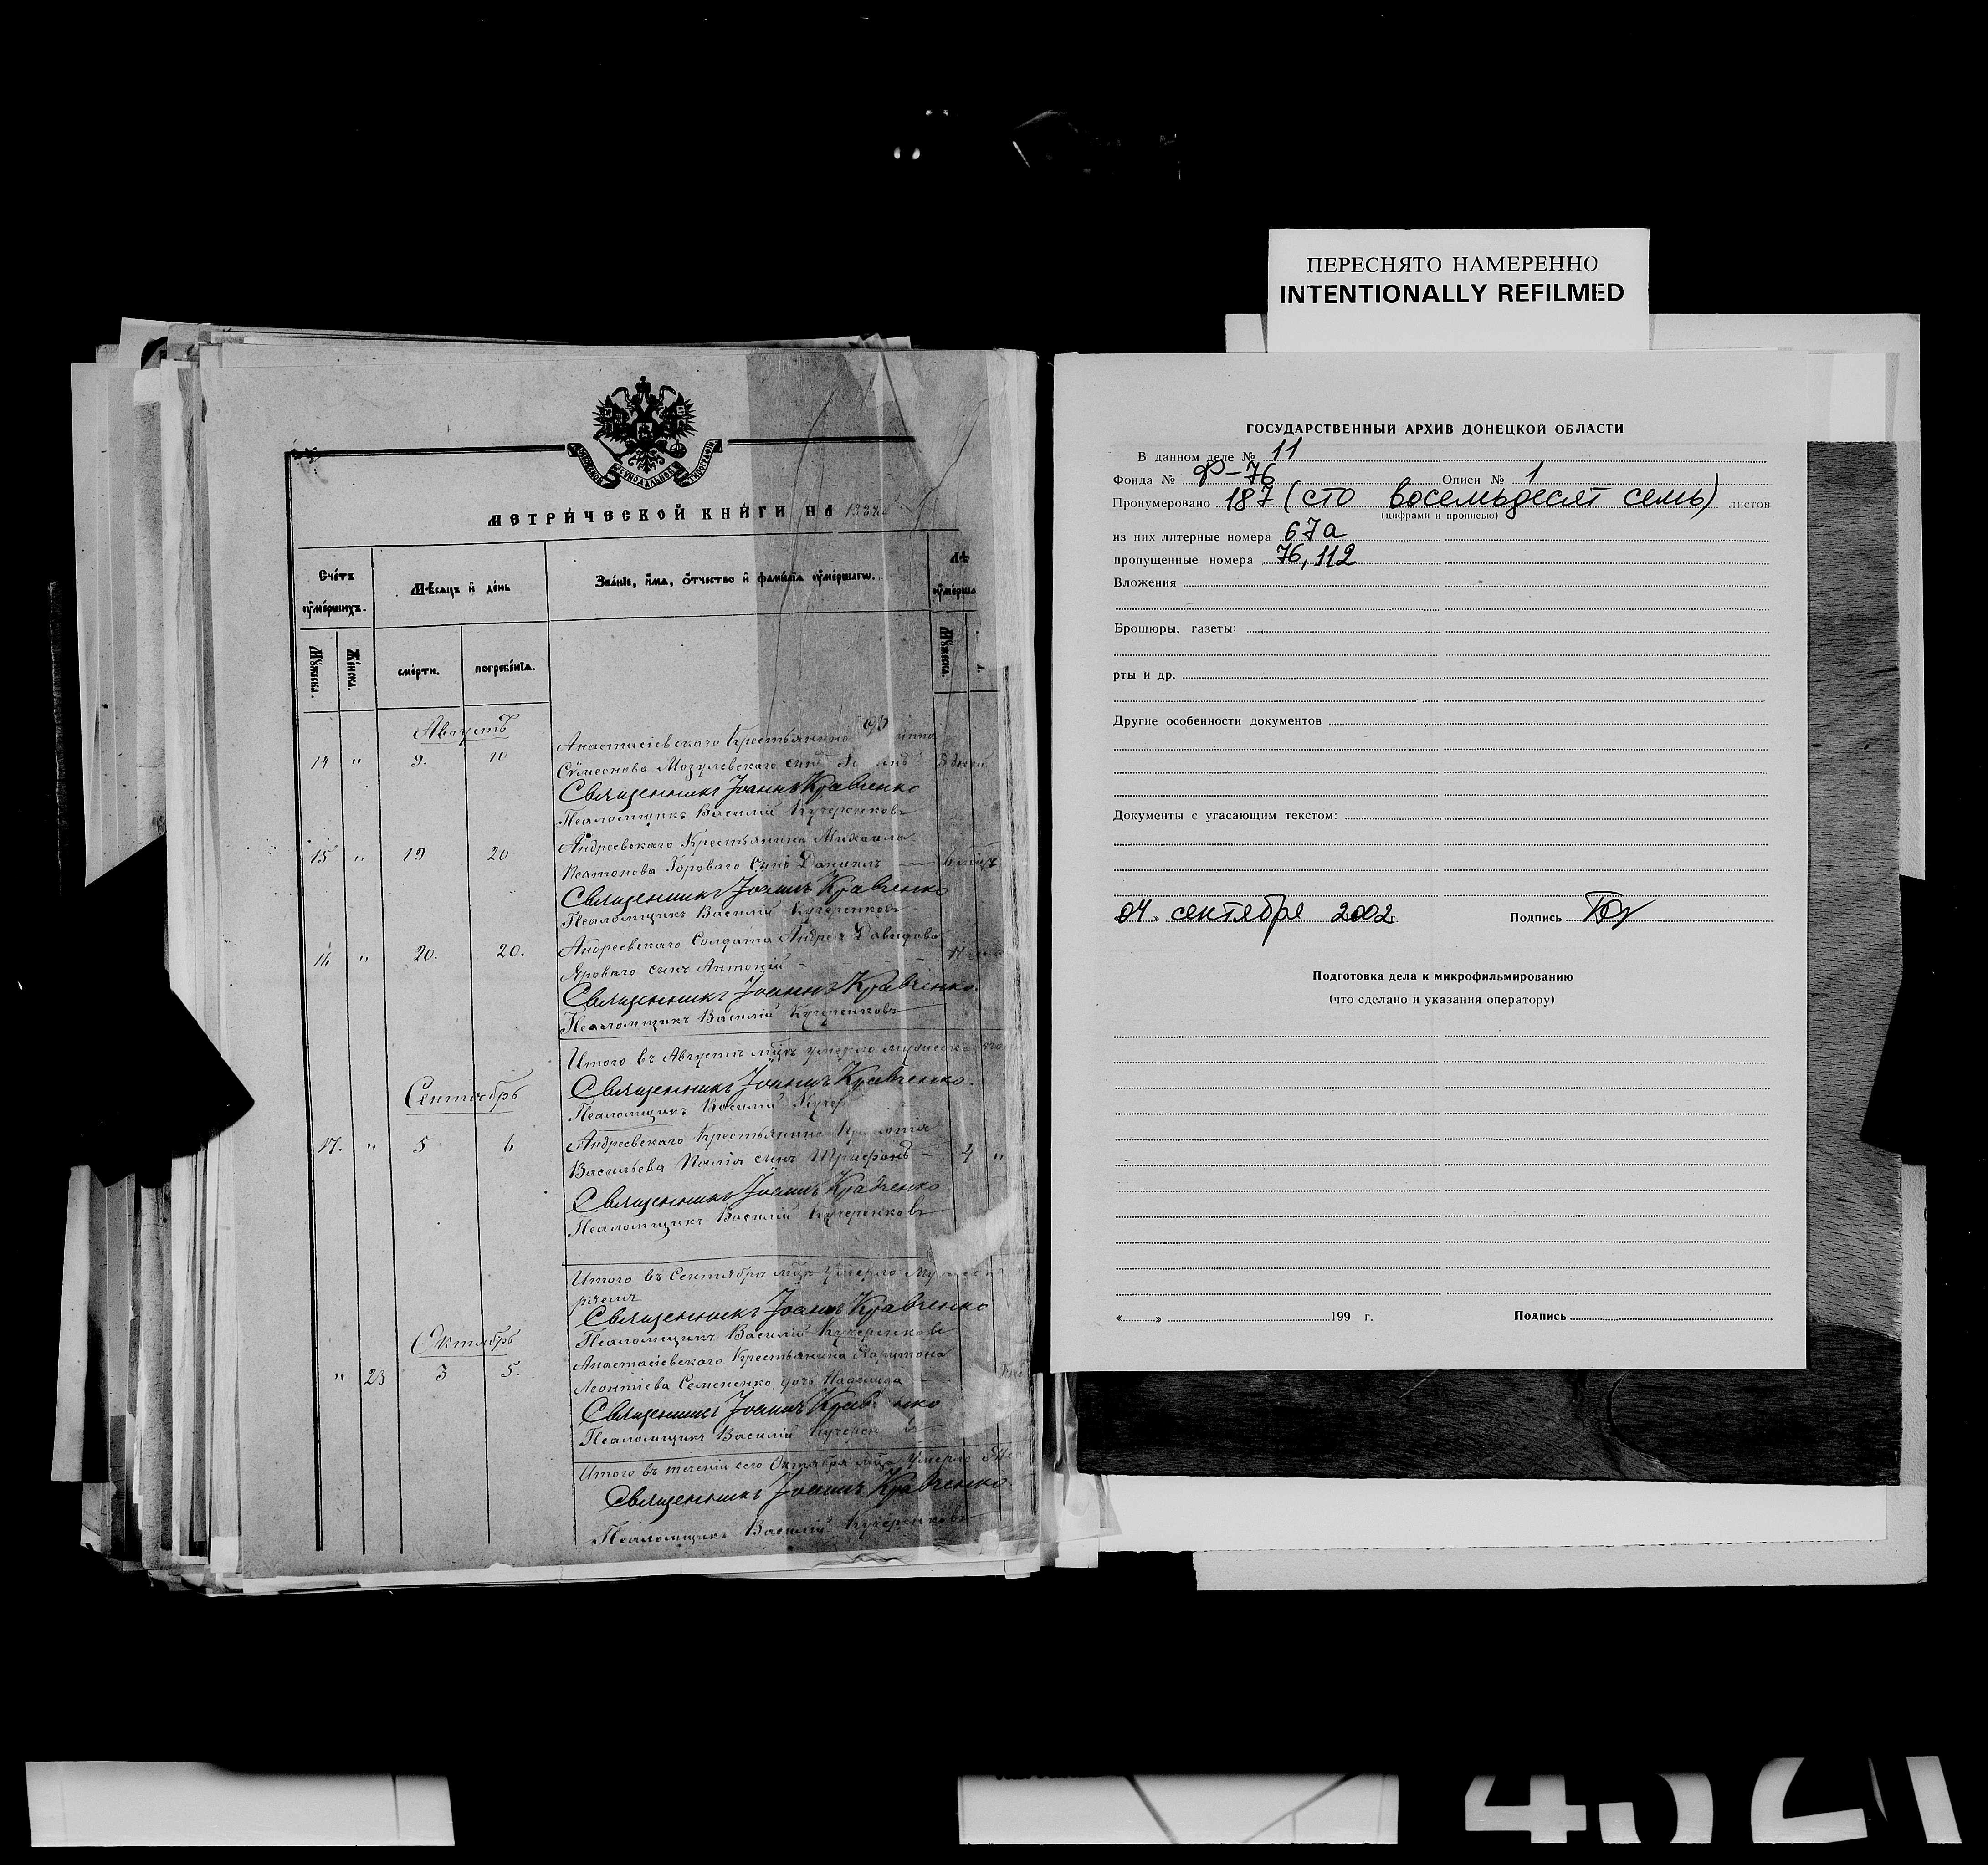 ПЕРЕСНЯТО НАМЕРЕННО
INTENTIONALLY REFILMED
МОСКОВСКОЙ СѴНОДАЛЬНОЙ ТИПОГРАФІИ
МЕТРИ́ЧЕСКОЙ КНИ́ГИ НА
Сче́тъ ᲂу҆ме́ршихъ.
Мѣ́сяцъ и҆ де́нь
Зва́нїе, и҆́мѧ, ѻ҆́тчество и҆ фами́лїѧ ᲂу҆ме́ршагѡ.
Мꙋ́жеска.
Же́нска.
сме́рти.
погребе́нїѧ.
Мꙋ́жеска.
Августъ
Анастасіевскаго Крестьянина
14 " 9. 10
Сѵмеонова Мозулевскаго сынъ
Священникъ Іоаннъ Кравченко
Псаломщикъ Василій Кучеренковъ
Андреевскаго Крестьянина Михаила
15 " 19 20
Горового Сынъ Даниилъ
Священникъ Іоаннъ Кравченко
Псаломщикъ Василій Кучеренковъ
Андреевскаго Солдата Андрея Давидова
16 " 20. 20.
Яроваго сынъ Антоній
Священникъ Іоаннъ Кравченко
Псаломщикъ Василій Кучеренковъ
Итого въ Августѣ мцѣ умерло
Священникъ Іоаннъ Кравченко
Сентябрь
Псаломщикъ Василій
Андреевскаго Крестьянина
17. " 5 6
Васильева Палія сынъ Трифонъ 4 "
Священникъ Іоаннъ Кравченко
Псаломщикъ Василій Кучеренковъ
Итого въ Сентябрѣ мцѣ умерло
Священникъ Іоаннъ Кравченко
Псаломщикъ Василій Кучеренковъ
Октябрь
Анастасіевскаго Крестьянина Харитона
" 23 3 5.
Леонтіева Семененко дочь Надежда
Священникъ Іоаннъ
Псаломщикъ Василій
Итого въ теченіи сего Октября мца умерло
Священникъ Іоаннъ Кравченко
Псаломщикъ Василій Кучеренковъ
ГОСУДАРСТВЕННЫЙ АРХИВ ДОНЕЦКОЙ ОБЛАСТИ
В данном деле № 11
Фонда № Ф-76 Описи № 1
Пронумеровано 187 (сто восемьдесят семь) листов
(цифрами и прописью)
из них литерные номера 67а
пропущенные номера 76, 112
Вложения
Брошюры, газеты:
рты и др.
Другие особенности документов
Документы с угасающим текстом:
04 » сентября 2002 г. Подпись
Подготовка дела к микрофильмированию
(что сделано и указания оператору)
« » 199 г. Подпись